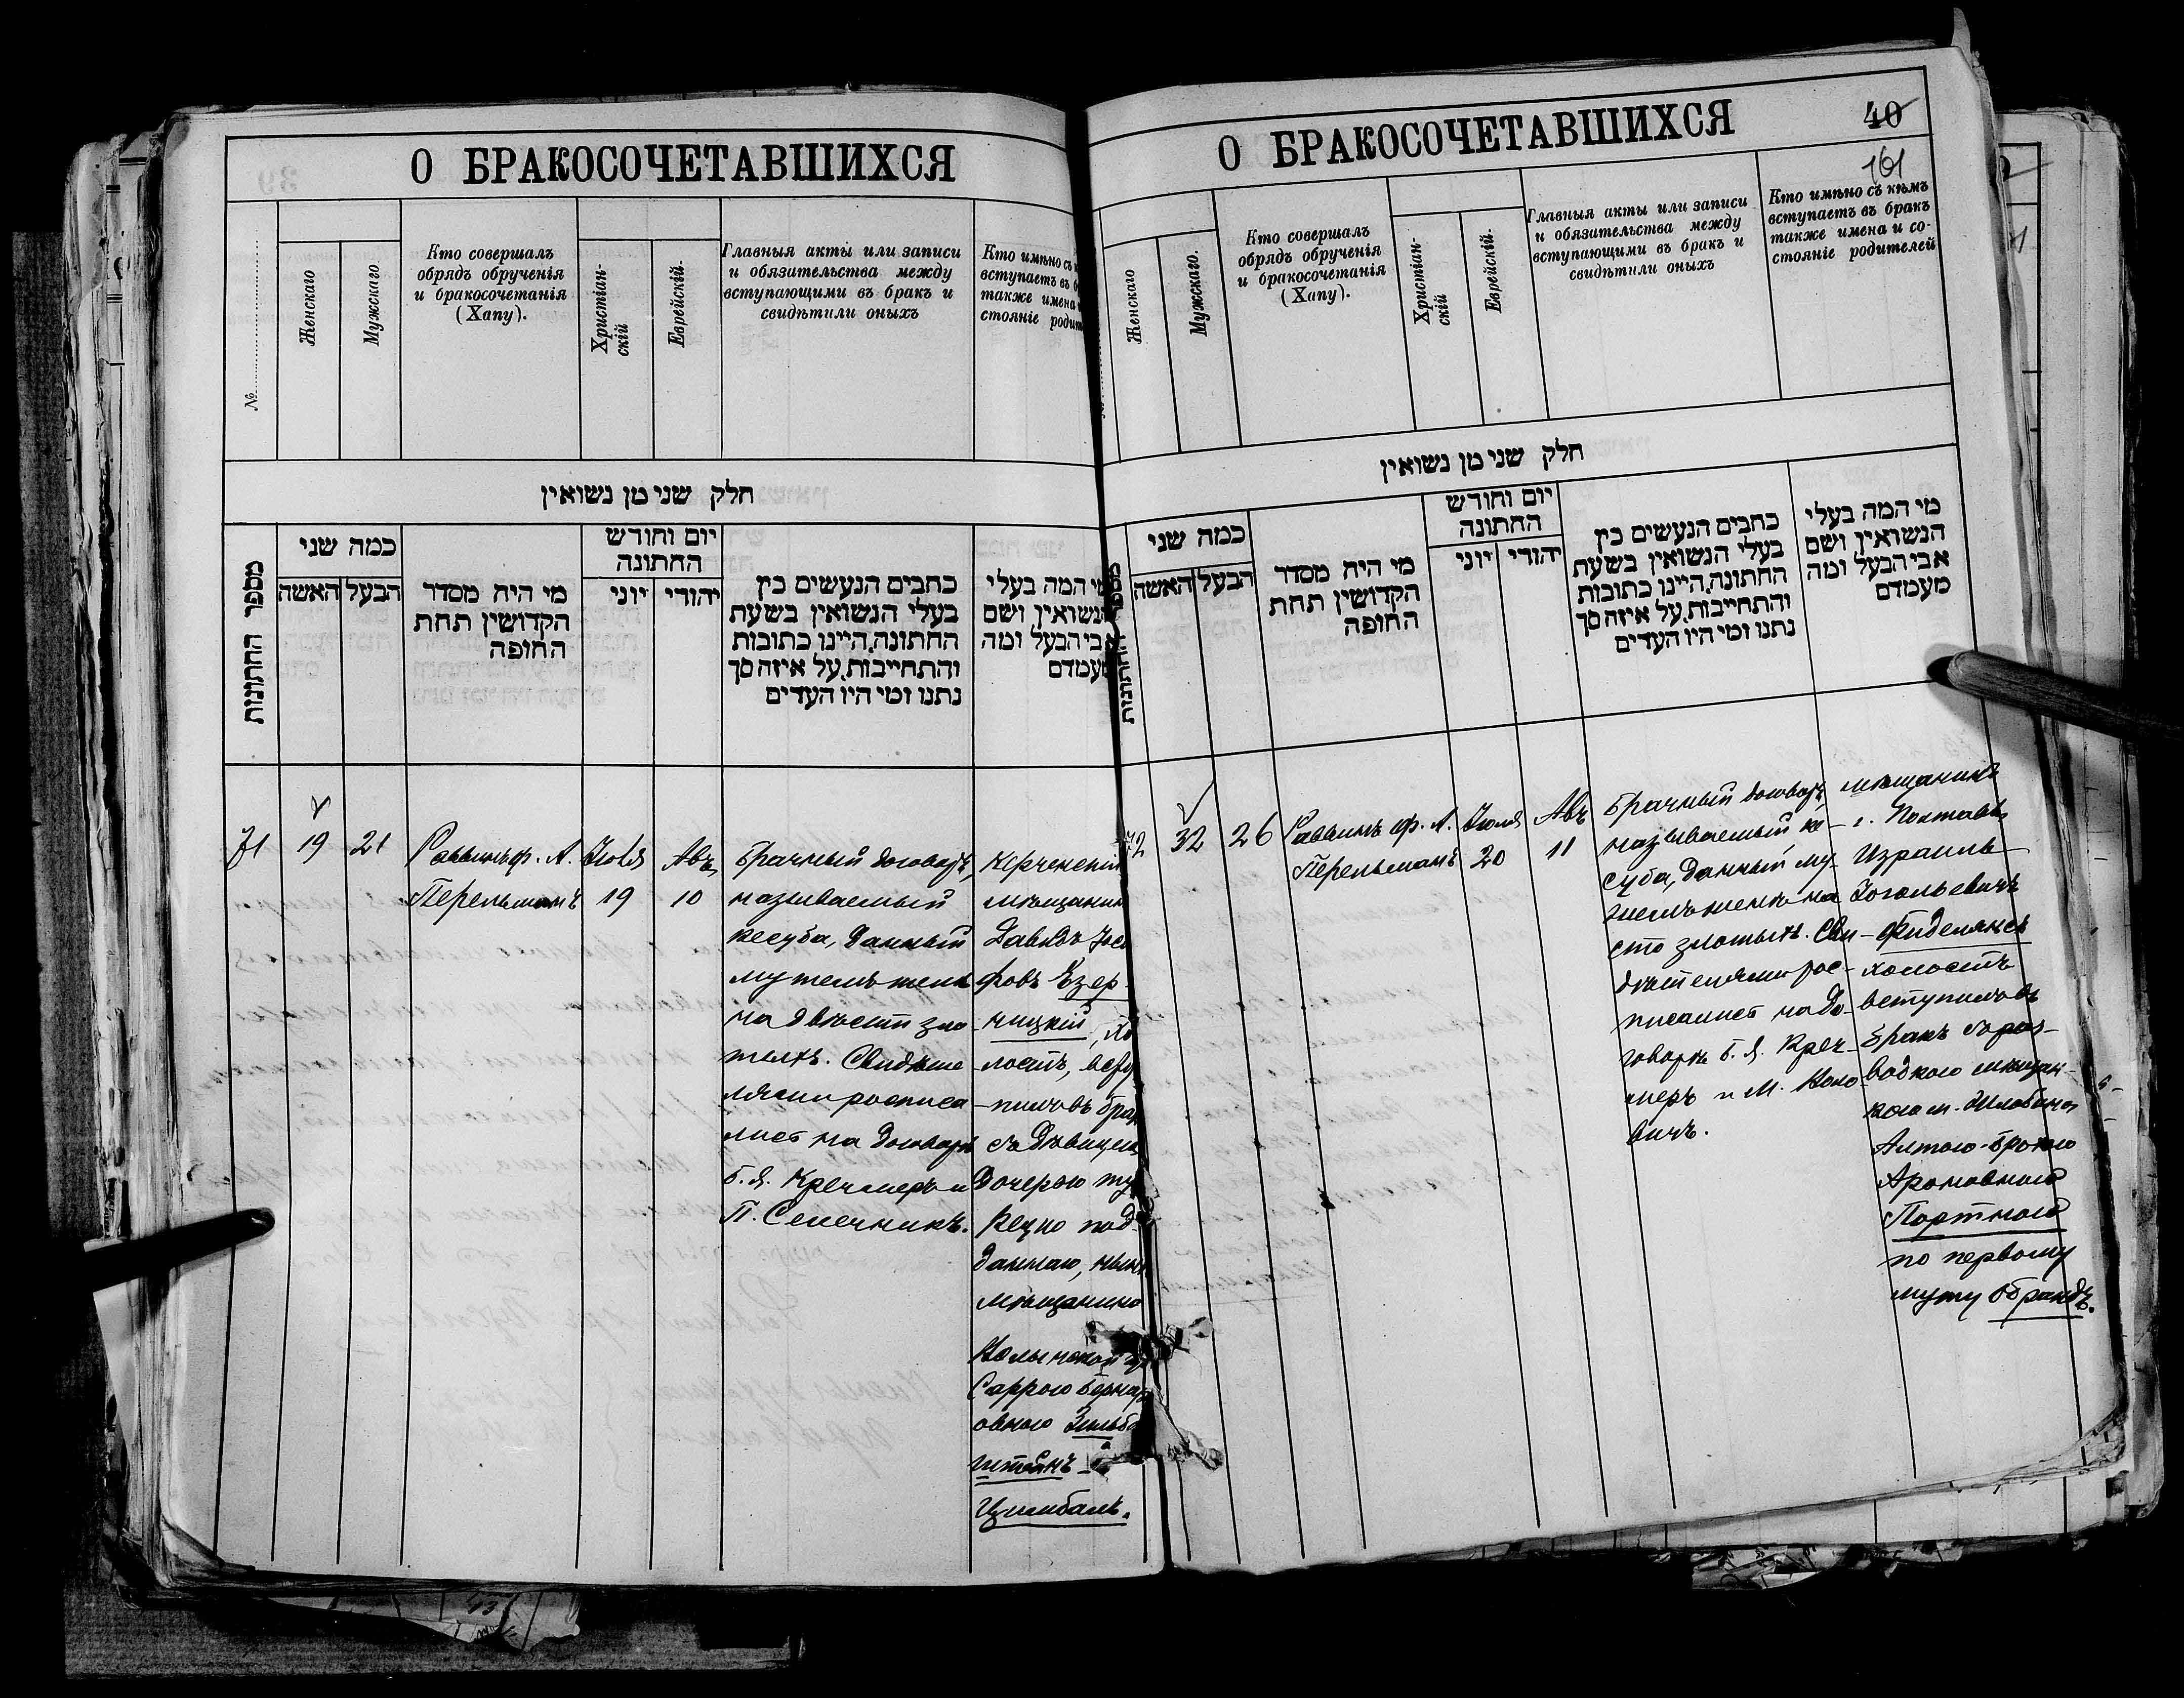 О БРАКОСОЧЕТАВШИХСЯ
№
Женскаго
Мужскаго
Кто совершалъ
обрядъ обрученія
и бракосочетанія
(Хапу).
Христіан-
скій
Еврейскій.
Главныя акты или записи
и обязательства между
вступающими въ бракъ и
свидѣтили оныхъ
Кто имѣно съ
вступаетъ въ
также имена
стояніе
חלק שני מן נשואין
מספר החתונות
כמה שני
האשה
הבעל
מי היה מסדר
הקדושין תחת
החופה
יום וחודש
החתונה
יוני
יהודי
כתבים הנעשים בין
בעלי הנשואין בשעת
החתונה,היינו כתובות
והתחייבות,על איזה סך
נתנו ומי היו העדים
מי המה בעלי
הנשואין ושם
אבי הבעל ומה
מעמדם
71
19
21
Раввинъ ф. А.
Перельманъ
Іюля
19
Авъ
10
Брачный договоръ,
называемый
кесуба, данный
мужемъ женѣ
на двѣсти зло-
тыхъ. Свидѣте-
лями росписа-
лись на договорѣ
Б. Я. Кречмеръ и
П. Сегечникъ.
Керченскій
мѣщанинъ
Давидъ
фовъ Езер-
ницкій, хо-
лостъ,
пилъ въ
съ дѣвицею
дочерью
рецко под-
даннаго,
мѣщанина
Саррою
овною
штейнъ-
Цимбалъ.
О БРАКОСОЧЕТАВШИХСЯ
40
161
Женскаго
Мужскаго.
Кто совершалъ
обрядъ обрученія
и бракосочетанія
(Хапу).
Христіан-
скій
Еврейскій.
Главныя акты или записи
и обязательства между
вступающими въ бракъ и
свидѣтили оныхъ
Кто имѣно съ кѣмъ
вступаетъ въ бракъ
также имена и со-
стояніе родителей
חלק שני מן נשואין
כמה שני
האשה
הבעל
מי היה מסדר
הקדושין תחת
החופה
יום וחודש
החתונה
יוני
יהודי
כתבים הנעשים בין
בעלי הנשואין בשעת
החתונה,היינו כתובות
והתחייבות,על איזה סך
נתנו ומי היו העדים
מי המה בעלי
הנשואין ושם
אבי הבעל ומה
מעמדם
72
32
26
Раввинъ ф. А.
Перельманъ
Іюля
20
Авъ
11
Брачный договоръ,
называемый ке-
суба, данный му-
жемъ женѣ на
сто злотыхъ. Сви-
дѣтелями рос-
писались на до-
говорѣ Б. Я. Креч-
меръ и М.
вичъ.
мѣщанинъ
г.
Израиль
холостъ
вступилъ въ
бракъ съ раз-
водкою мѣщан-
кою м.
Ароновною
Портного
по первому
мужу Брандъ.